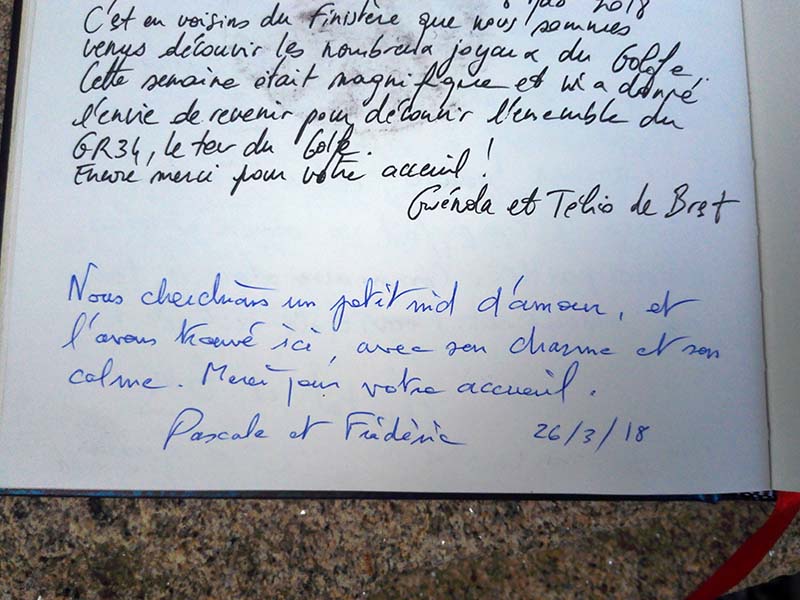 2018
C'est en voisins du Finistère que nous sommes
venus découvrir les nombreux joyaux du Golfe.
Cette semaine était magnifique et m'a donné
l'envie de revenir pour découvrir l'ensemble du
GR34, le tour du Golfe.
Encore merci pour votre acceuil !
Gwénola et Télio de Brest
Nous cherchions un petit nid d'amour, et
l'avons trouvé ici, avec son charme et son
calme. Merci pour votre accueil.
Pascale et Frédéric 26/3/18